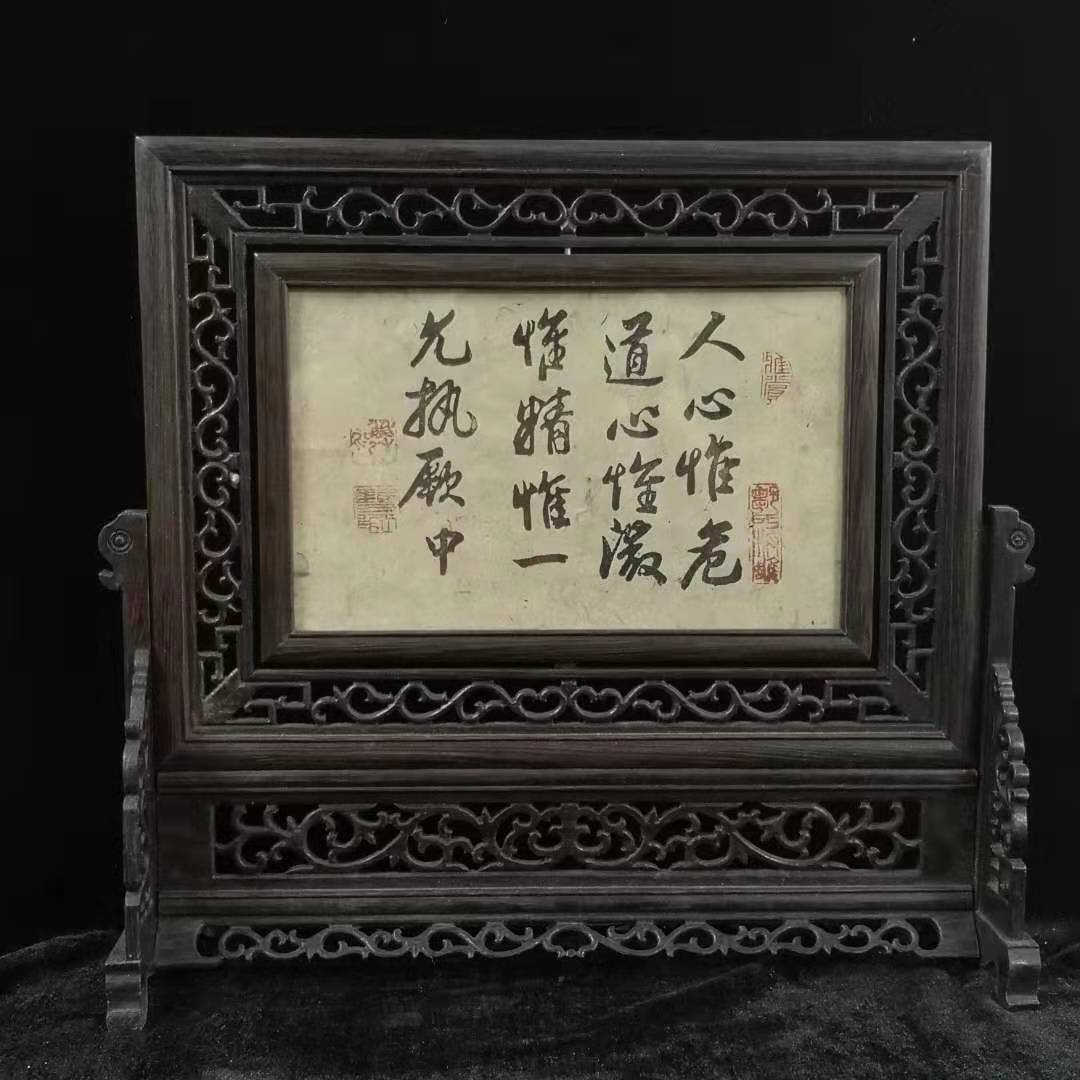 人心惟危
道心惟微
惟精惟一
允执厥中